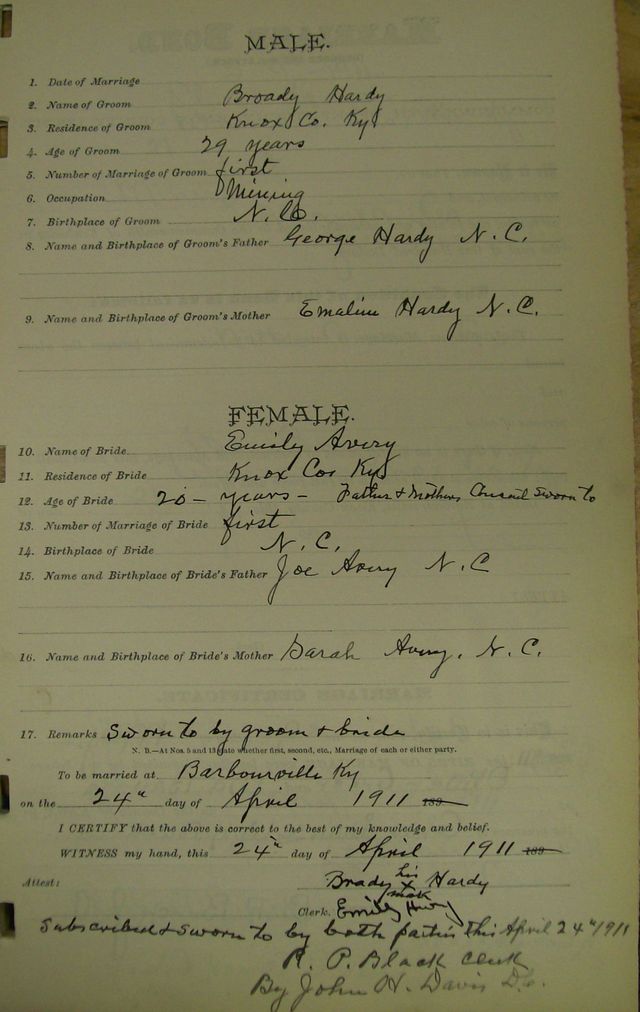 MALE.
1. Date of Marriage
2. Name of Groom Broady Hardy
3. Residence of Groom Knox Co. Ky
4. Age of Groom 29 years
5. Number of Marriage of Groom first
6. Occupation Mining
7. Birthplace of Groom N. C.
8. Name and Birthplace of Groom's Father George Hardy N. C.
9. Name and Birthplace of Groom's Mother Emaline Hardy N. C.
FEMALE.
10. Name of Bride Emily Avery
11. Residence of Bride Knox Co Ky
12. Age of Bride 20 - years - Father & Mothers Consent Sworn to
13. Number of Marriage of Bride first
14. Birthplace of Bride N. C.
15. Name and Birthplace of Bride's Father Joe Avery N. C
16. Name and Birthplace of Bride's Mother Sarah Avery. N. C.
17. Remarks Sworn to by groom & bride
N. B.—At Nos. 5 and 13 state whether first, second, etc., Marriage of each or either party.
To be married at Barbourville Ky
on the 24th day of April 1911 189
I CERTIFY that the above is correct to the best of my knowledge and belief.
WITNESS my hand, this 24th day of April 1911 189
Attest: Brady his x mark Hardy
Clerk. Emily
Subscribed & sworn to by both parties this April 24th 1911
R. P. Black Clerk
By John H. Davis D.C.